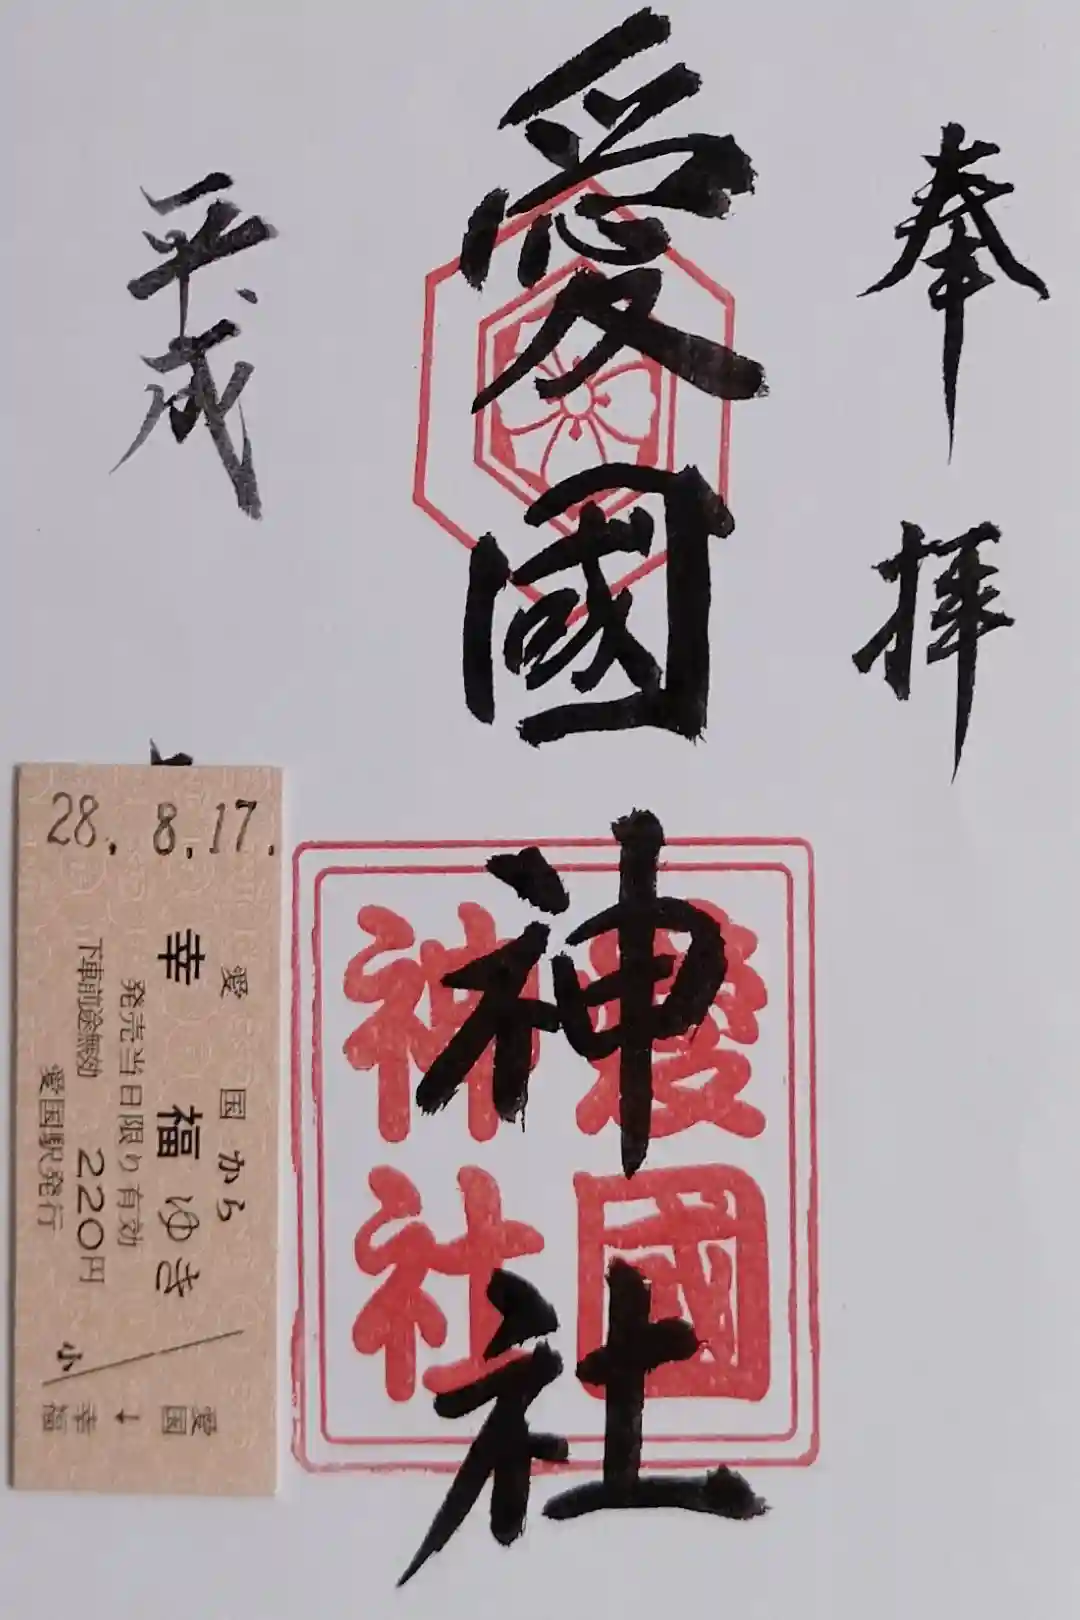 奉拝
愛國神社
愛國
神社
平成
28. 8.17.
愛国から
幸福ゆき
発売当日限り有効
下車前途無効 220円
愛国駅発行
小
愛国
↓
幸福